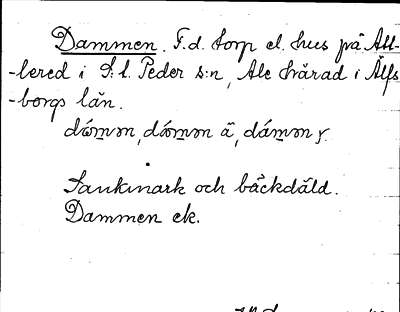 Dammen. F.d. torp el. hus på All-
-lered i S:t Peder s:n, Ale härad i Älfs
-borgs län.
dámən, dámən ä, dámən
Sankmark och bäckdäld.
Dammen ek.